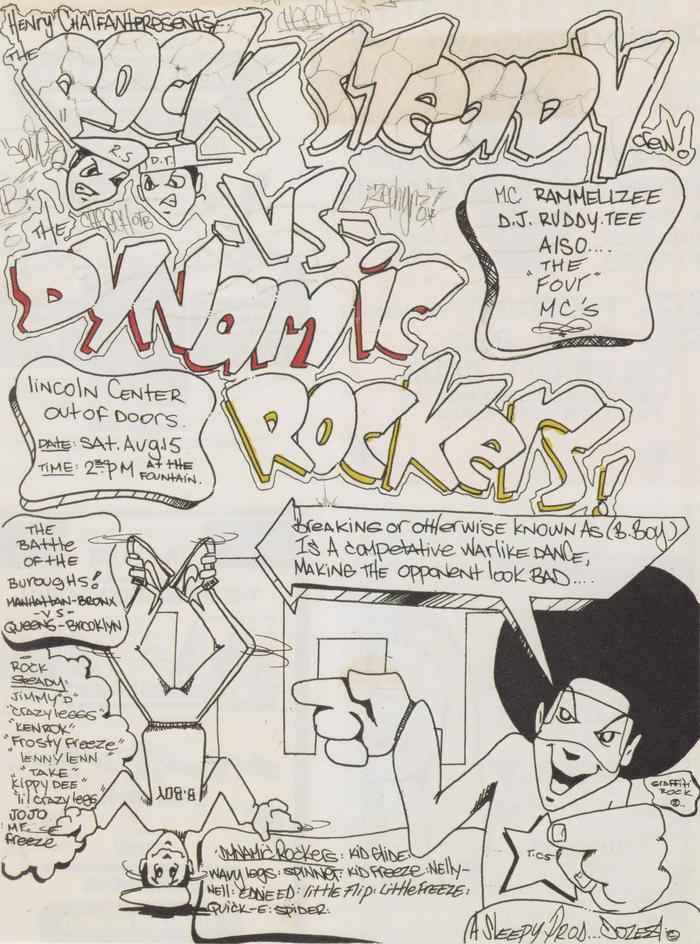 HENRY CHALFANT PRESENTS...
THE
ROCK STEADY
CREW!
R.S
D.R.
-VS-
THE
DYNAMIC
ROCKERS!
MC RAMMELLZEE
D.J. RUDDY.TEE
ALSO...
THE
"FOUR"
MC'S
LINCOLN CENTER
OUT OF DOORS.
DATE: SAT. AUG.15
TIME: 2:00 PM AT THE
FOUNTAIN.
THE
BATTLE
OF THE
BUROUGHS!
MANHATTAN-BRONX
-VS-
QUEENS-BROOKLYN
BREAKING OR OTHERWISE KNOWN AS (B.BOY)
IS A COMPETATIVE WARLIKE DANCE,
MAKING THE OPPONENT LOOK BAD....
ROCK
STEADY:
JIMMY "D"
"CRAZY LEGGS"
"KEN ROK"
"FROSTY FREEZE"
LENNY LENN
"TAKE"
"KIPPY DEE"
"LIL CRAZY LEGS"
JOJO
MR.
FREEZE
B.BOY
GRAFFITI
ROCK
T.C5
DYNAMIC ROCKERS: KID GLIDE:
WAVY LEGS: SPINNER: KID FREEZE: NELLY-
NELL: EDDIE ED: LITTLE FLIP: LITTLE FREEZE:
QUICK-E: SPIDER:
A SLEEPY PROD...